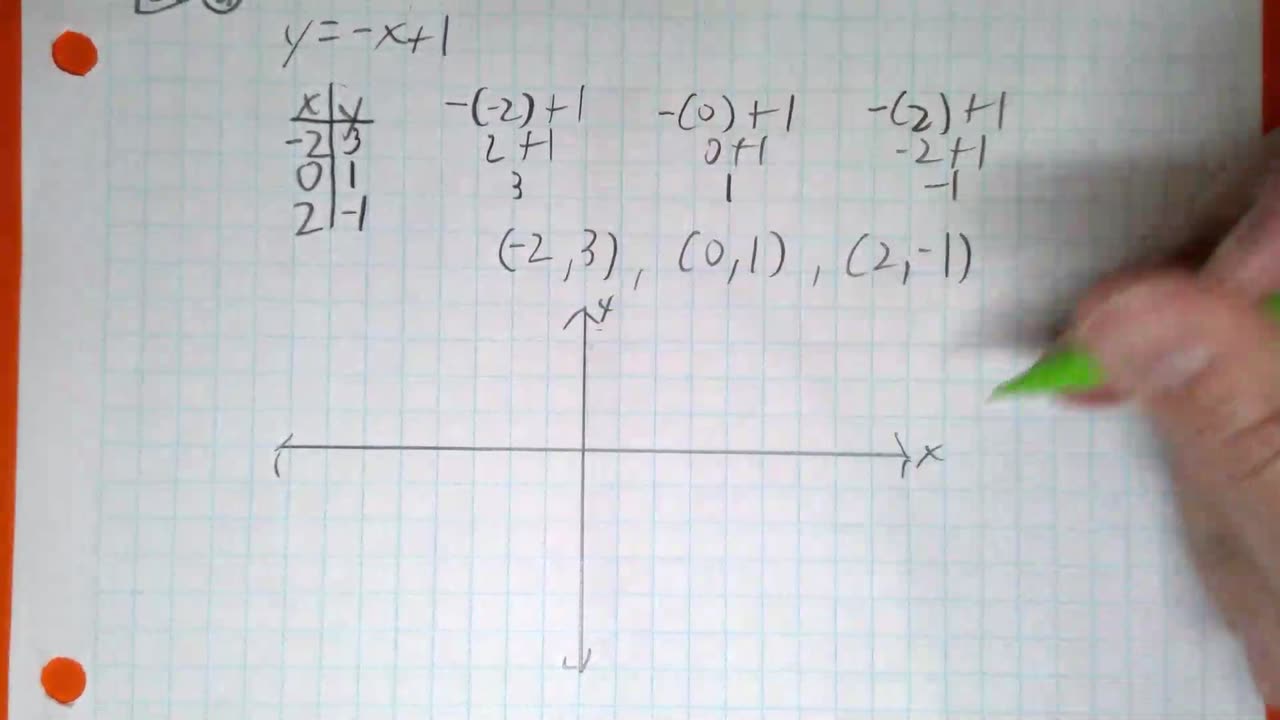 y=-x+1
x y -(-2)+1 -(0)+1 -(2)+1
-2 3 2+1 0+1 -2+1
0 1 3 1 -1
2 -1
(-2,3), (0,1), (2,-1)
y
x